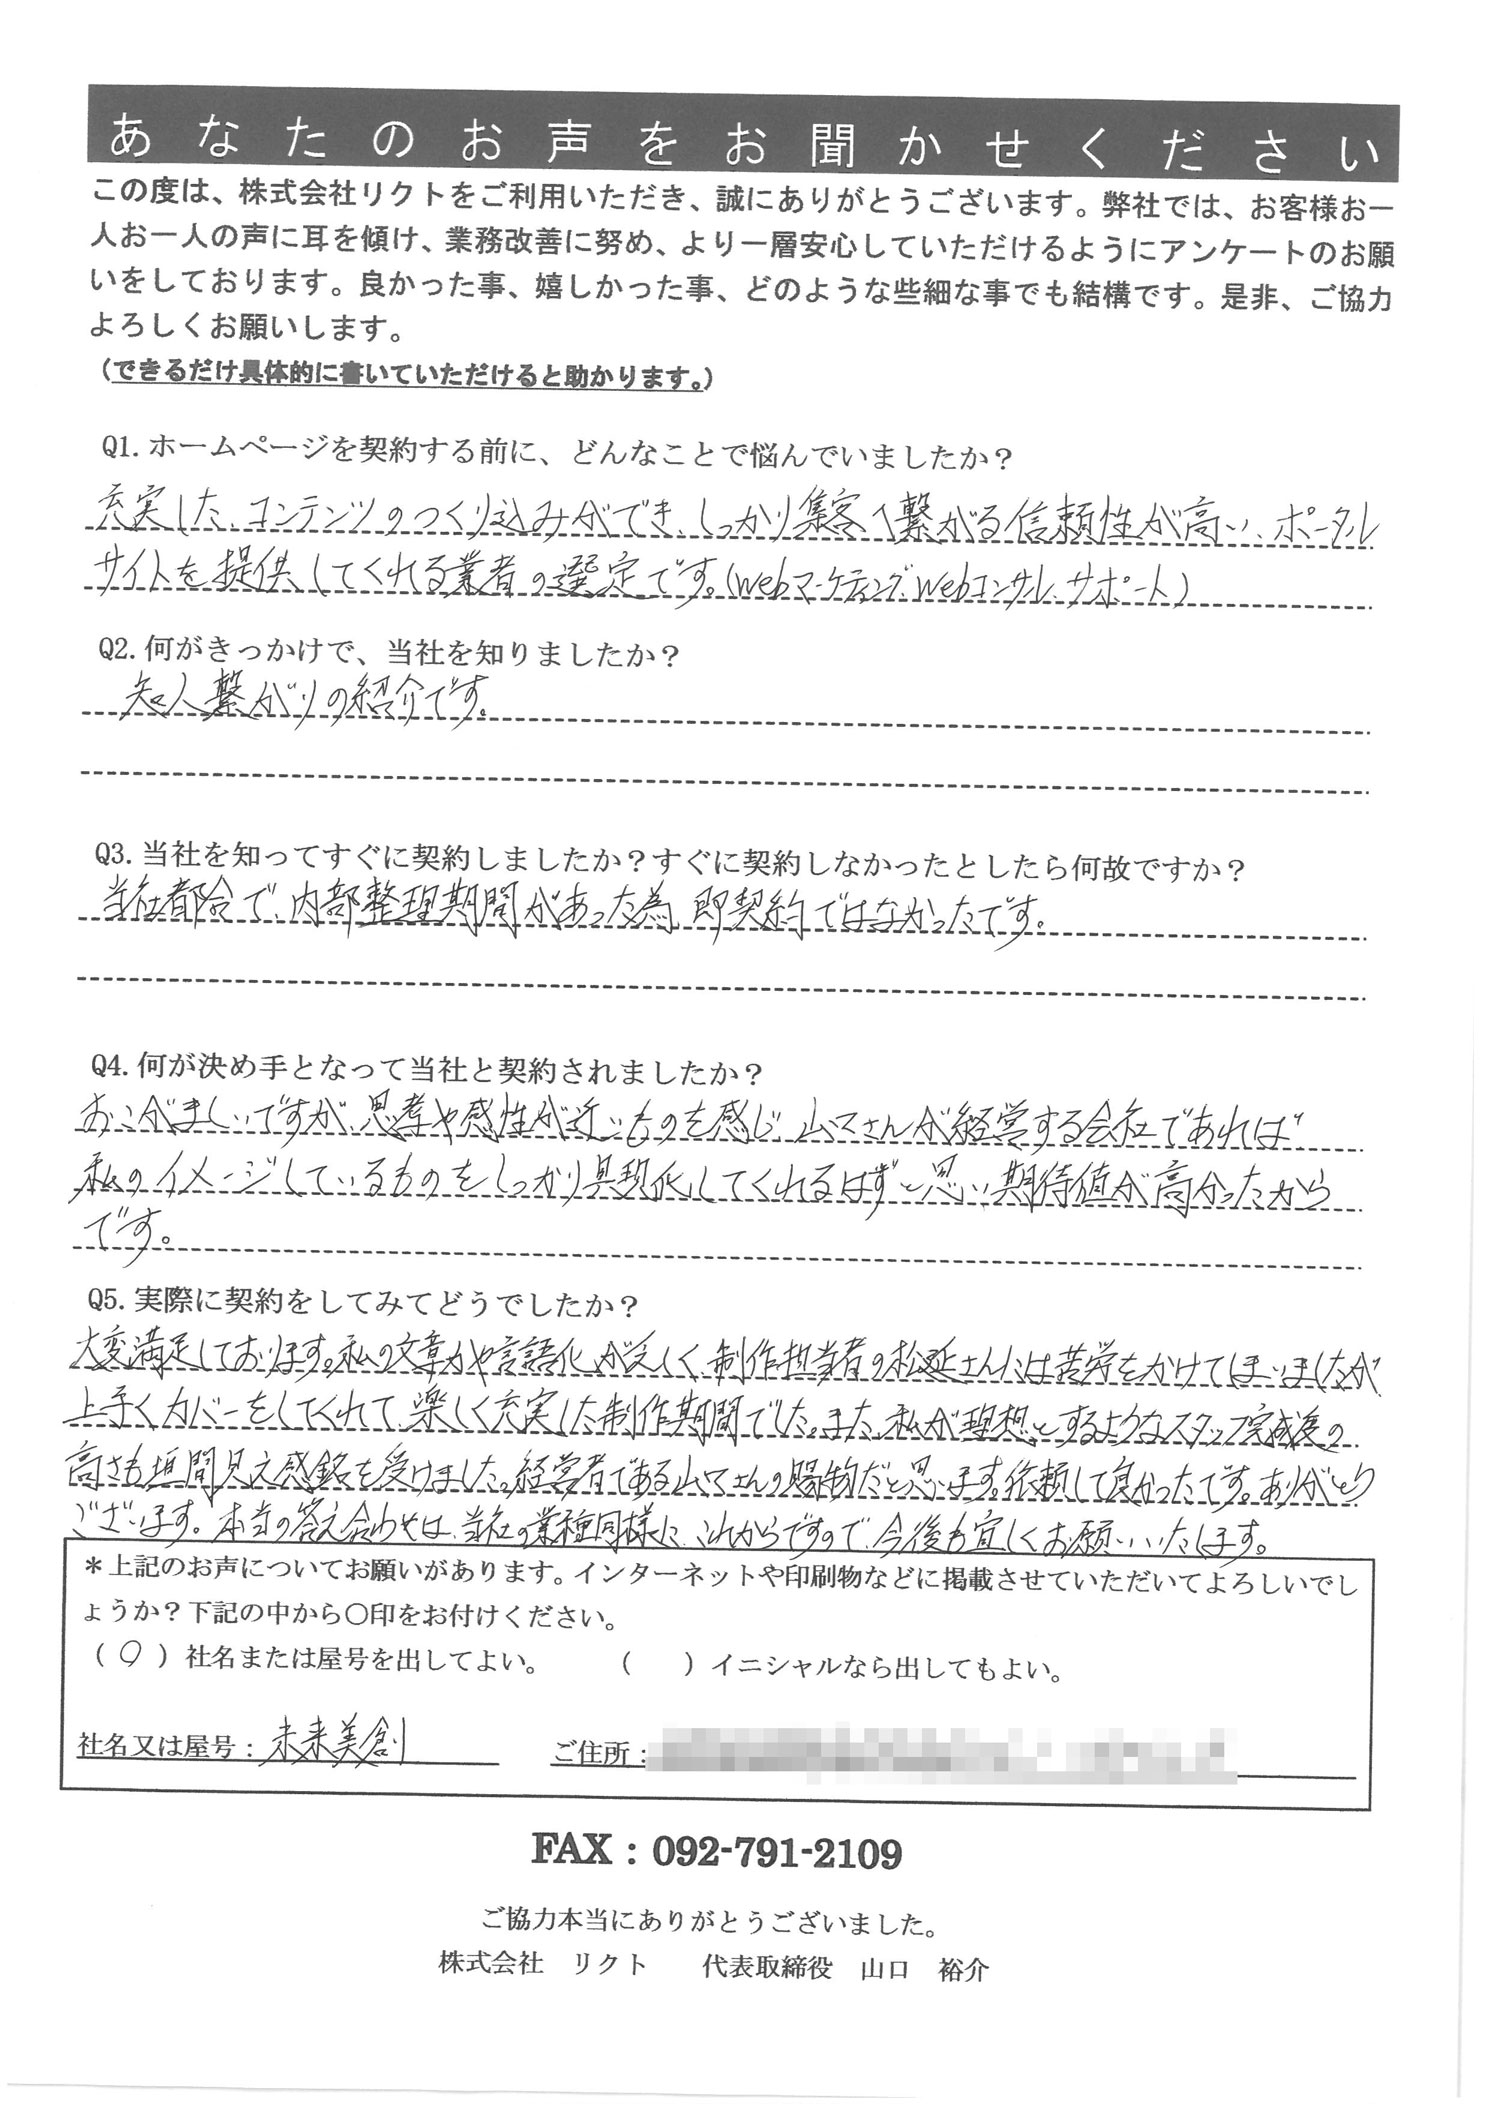 あなたのお声をお聞かせください
この度は、株式会社リクトをご利用いただき、誠にありがとうございます。弊社では、お客様お一
人お一人の声に耳を傾け、業務改善に努め、より一層安心していただけるようにアンケートのお願
いをしております。良かった事、嬉しかった事、どのような些細な事でも結構です。是非、ご協力
よろしくお願いします。
（できるだけ具体的に書いていただけると助かります。）
Q1. ホームページを契約する前に、どんなことで悩んでいましたか？
充実した、コンテンツのつくり込みができ、しっかり集客へ繋がる信頼性が高い、ポータル
サイトを提供してくれる業者の選定です。(Webマーケティング、Webコンサル、サポート)
Q2. 何がきっかけで、当社を知りましたか？
知人繋がりの紹介です。
Q3. 当社を知ってすぐに契約しましたか？すぐに契約しなかったとしたら何故ですか？
当社都合で、内部整理期間があった為、即契約ではなかったです。
Q4. 何が決め手となって当社と契約されましたか？
おこがましいですが、思考や感性が近いものを感じ、山口さんが経営する会社であれば
私のイメージしているものをしっかり具現化してくれるはずと思い、期待値が高かったから
です。
Q5. 実際に契約をしてみてどうでしたか？
大変満足しております。私の文章力や言語化が乏しく、制作担当者の松延さんには苦労をかけてしまいましたが
上手くカバーをしてくれて、楽しく充実した制作期間でした。また、私が理想とするようなスタッフ完成度の
高さも垣間見え感銘を受けました。経営者である山口さんの賜物だと思います。依頼して良かったです。ありがとう
ございます。本当の答え合わせは、当社の業種同様に、これからですので、今後も宜しくお願いいたします。
＊上記のお声についてお願いがあります。インターネットや印刷物などに掲載させていただいてよろしいでし
ょうか？下記の中から〇印をお付けください。
（ 〇 ）社名または屋号を出してよい。 （ ）イニシャルなら出してもよい。
社名又は屋号：未来美創 ご住所：
FAX：092-791-2109
ご協力本当にありがとうございました。
株式会社 リクト 代表取締役 山口 裕介